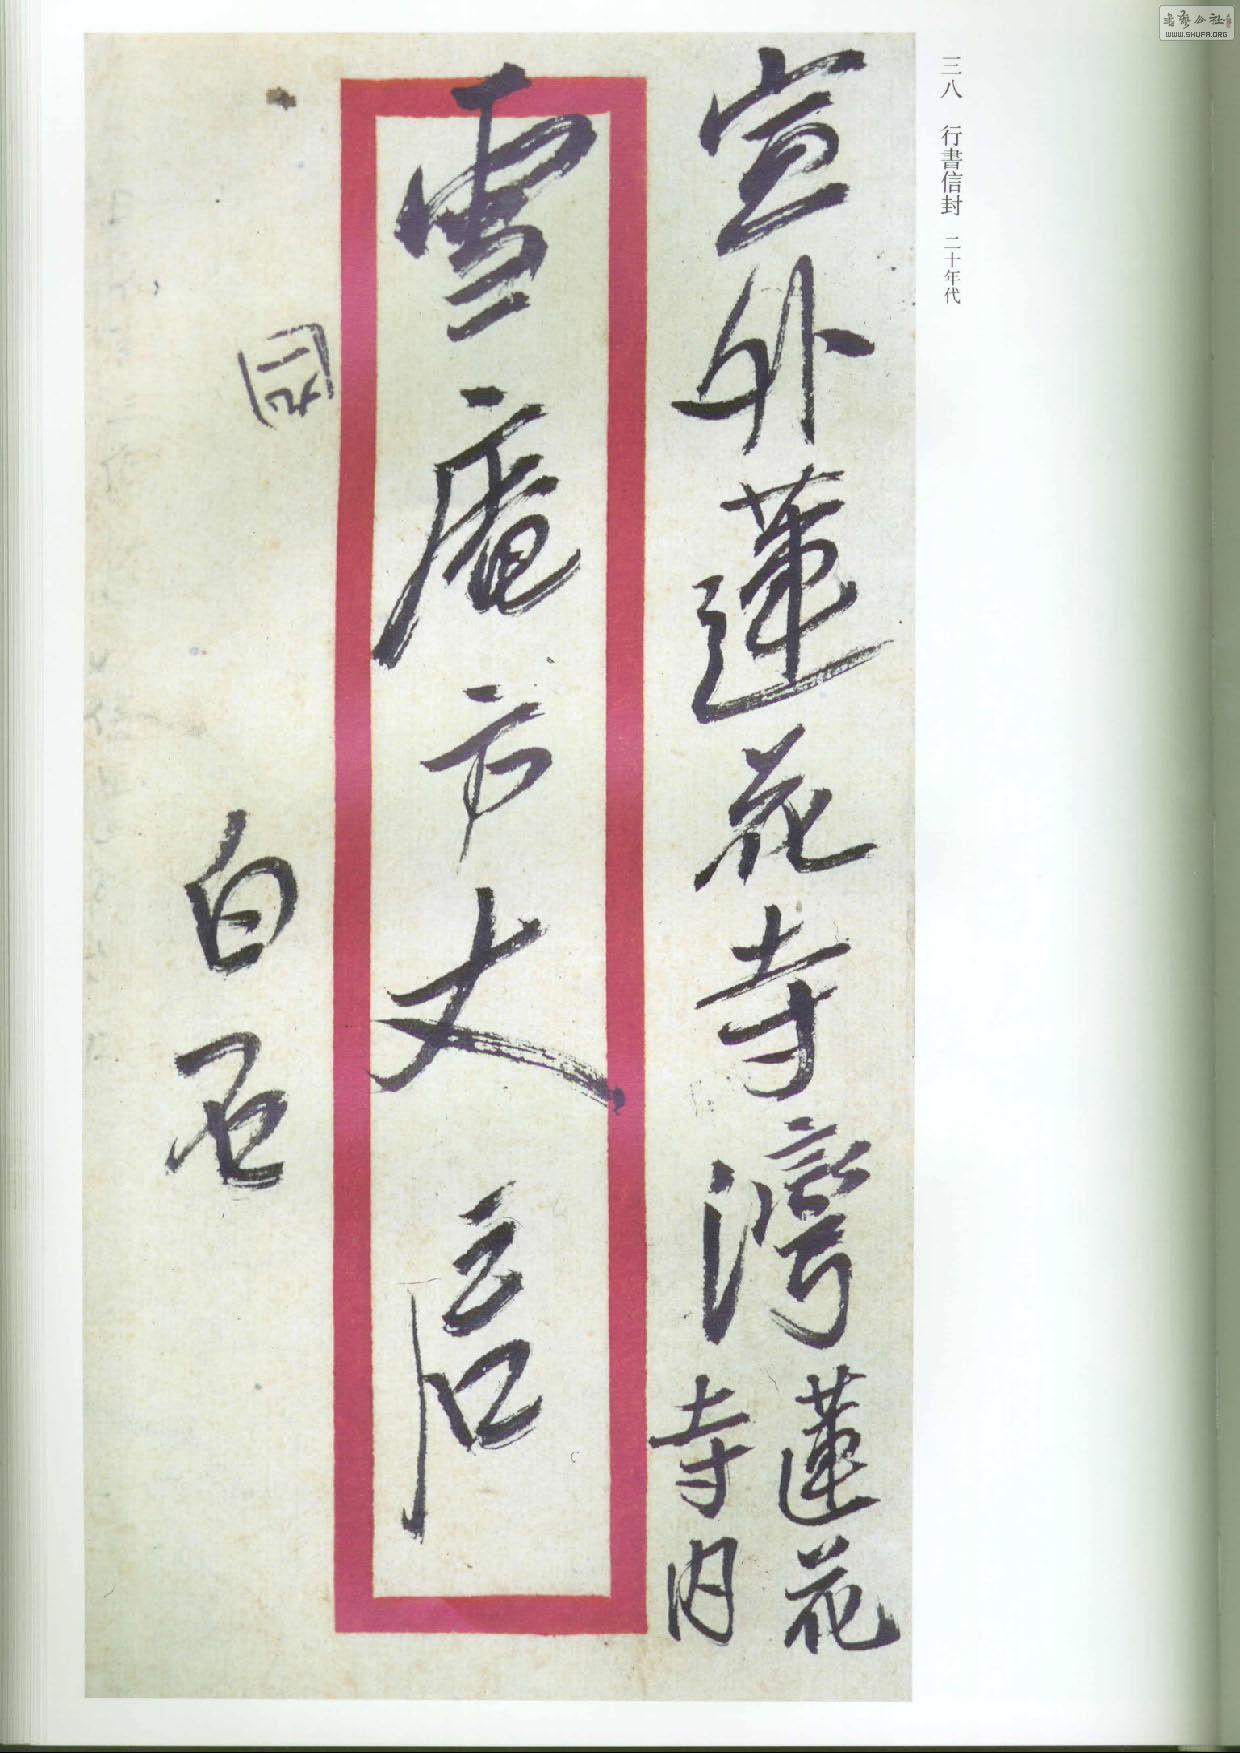 書藝公社
WWW.SHUFA.ORG
三八 行書信封 二十年代
宣外蓮花寺灣
蓮花
寺内
雪庵方丈
白石